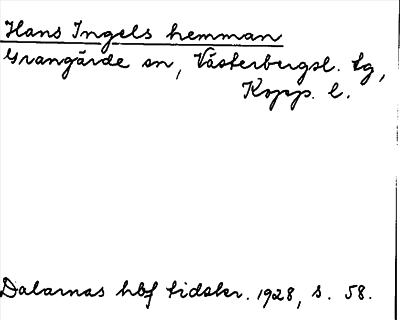 Hans Ingels hemman
Grangärde sn, Västerbergsl. tg,
Kopp. l.
Dalarnas hbf tidskr. 1928, s. 58.